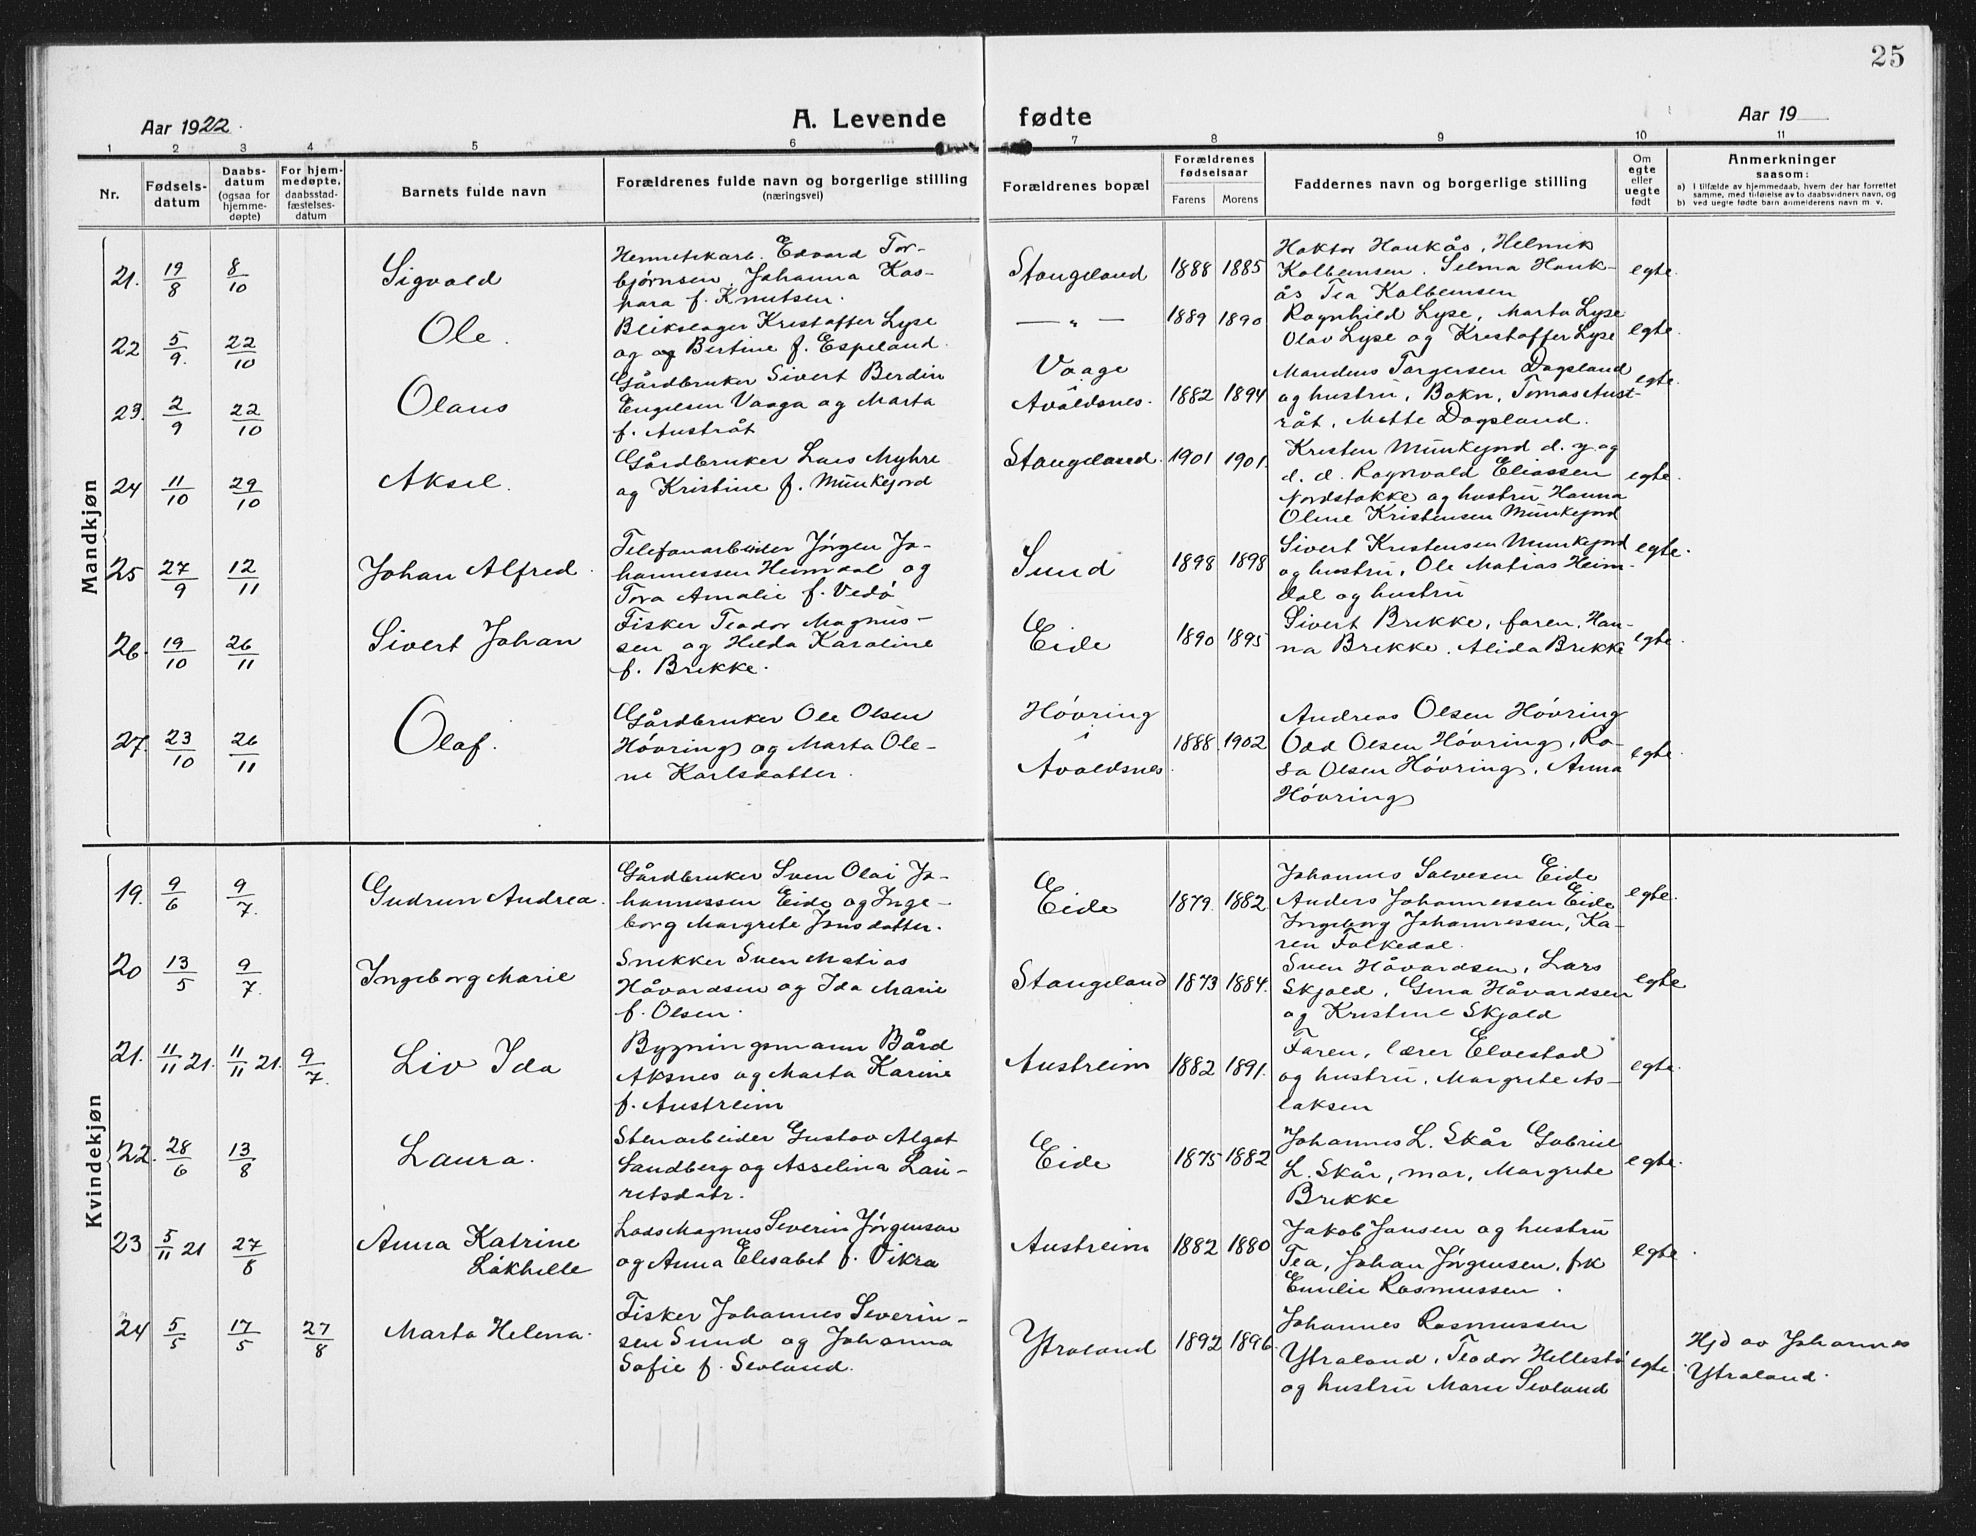 25
Aar 1922.
A. Levende fødte
Aar 19
1 2 3 4 5 6 7 8 9 10 11
Nr.
Fødselsdatum
Daabsdatum (ogsaa for hjemmedøpte)
For hjemmedøpte, daabsstadfæstelsesdatum
Barnets fulde navn
Forældrenes fulde navn og borgerlige stilling
(næringsvei)
Forældrenes bopæl
Forældrenes fødselsaar
Farens Morens
Faddernes navn og borgerlige stilling
Om egte eller uegte født
Anmerkninger
saasom:
a) I tilfælde av hjemmedaab, hvem der har forrettet
samme, med tilføielse av to daabsvidners navn, og
b) ved uegte fødte barn anmelderens navn m. v.
Mandkjøn
21. 19/8 8/10 Sigvald
Hermetikarb. Edvard Tor-
bjørnsen, Johanna Kas-
para f. Knutsen.
Stangeland 1888 1885
Haktor Haukås, Helmik
Kolbeinsen. Selma Hauk-
ås Tea Kolbeinsen
egte.
22 5/9. 22/10 Ole.
Blikslager Kristoffer Lyse
og og Bertine f. Espeland.
— " — 1889 1890
Ragnhild Lyse, Marta Lyse
Olav Lyse og Kristoffer Lyse
egte.
23. 2/9 22/10 Olaus
Gårdbruker Sivert Berdin
Engelsen Vaaga og Marta
f. Austråt
Vaage
i
Avaldsnes. 1882 1894
Mandius Torgersen Dagsland
og hustru, Bokn, Tomas Aust-
råt, Mette Dagsland.
egte.
24 11/10 29/10 Aksel.
Gårdbruker Lars Myhre
og Kristine f. Munkejord
Stangeland. 1901 1901.
Kristen Munkejord d. y. og
d. d. Ragnvald Eliassen
Nordstokke og hustru Hanna
Oline Kristensen Munkejord
egte.
25 27/9 12/11 Johan Alfred.
Telefonarbeider Jørgen Jo-
hannessen Heimdal og
Tora Amalie f. Vedø
Sund 1898 1898
Sivert Kristensen Munkejord
og hustru, Ole Matias Heim-
dal og hustru
egte.
26. 19/10 26/11 Sivert Johan
Fisker Teodor Magnus-
sen og Hilda Karoline
f. Brekke.
Eide 1890 1895
Sivert Brekke, faren, Han-
na Brekke, Alida Brekke
egte.
27. 23/10 26/11 Olaf.
Gårdbruker Ole Olsen
Høvring og Marta Ole-
ne Karlsdatter.
Høvring
i
Avaldsnes. 1888. 1902
Andreas Olsen Høvring
Odd Olsen Høvring, Ro-
sa Olsen Høvring, Anna
Høvring
egte.
Kvindekjøn
19. 9/6 9/7. Gudrun Andrea.
Gårdbruker Sven Olai Jo-
hannessen Eide og Inge-
borg Margrete Jonsdatter.
Eide 1879. 1882
Johannes Salvesen Eide
Anders Johannessen Eide
Ingeborg Johannessen, Ka-
ren Falkedal.
egte.
20 13/5 9/7. Ingeborg Marie
Snekker Sven Matias
Håvardsen og Ida Marie
f. Olsen.
Stangeland 1873 1884.
Sven Håvardsen, Lars
Skjold, Gina Håvardsen
og Kristine Skjold
egte
21. 11/11 21. 11/11 21. 9/7. Liv Ida
Bygningsmann Bård
Aksnes og Marta Karine
f. Austreim
Austreim 1882 1891.
Faren, lærer Elvestad
og hustru, Margrete As-
laksen
egte.
22. 28/6 13/8 Laura.
Stenarbeider Gustav Algot
Sandberg og Asselina Lau-
ritsdatr.
Eide 1875 1882
Johannes L. Skår Gabriel
L. Skår, mor, Margrete
Brekke
egte.
23 5/11 21 27/8 Anna Katrine
Låkhelle
Lods Magnus Severin Jørgensen
og Anna Elisabet f. Vikra
Austreim 1882 1880
Jakob Jansen og hustru
Tea, Johan Jørgensen, frk
Emilie Rasmussen.
egte.
24 5/5 17/5 27/8 Marta Helena.
Fisker Johannes Severin-
sen Sund og Johanna
Sofie f. Sevland.
Ytraland 1892 1896
Johannes Rasmussen
Ytraland, Teodor Hellestø
og hustru Marie Sevland
egte.
Hjd av Johannes
Ytraland.